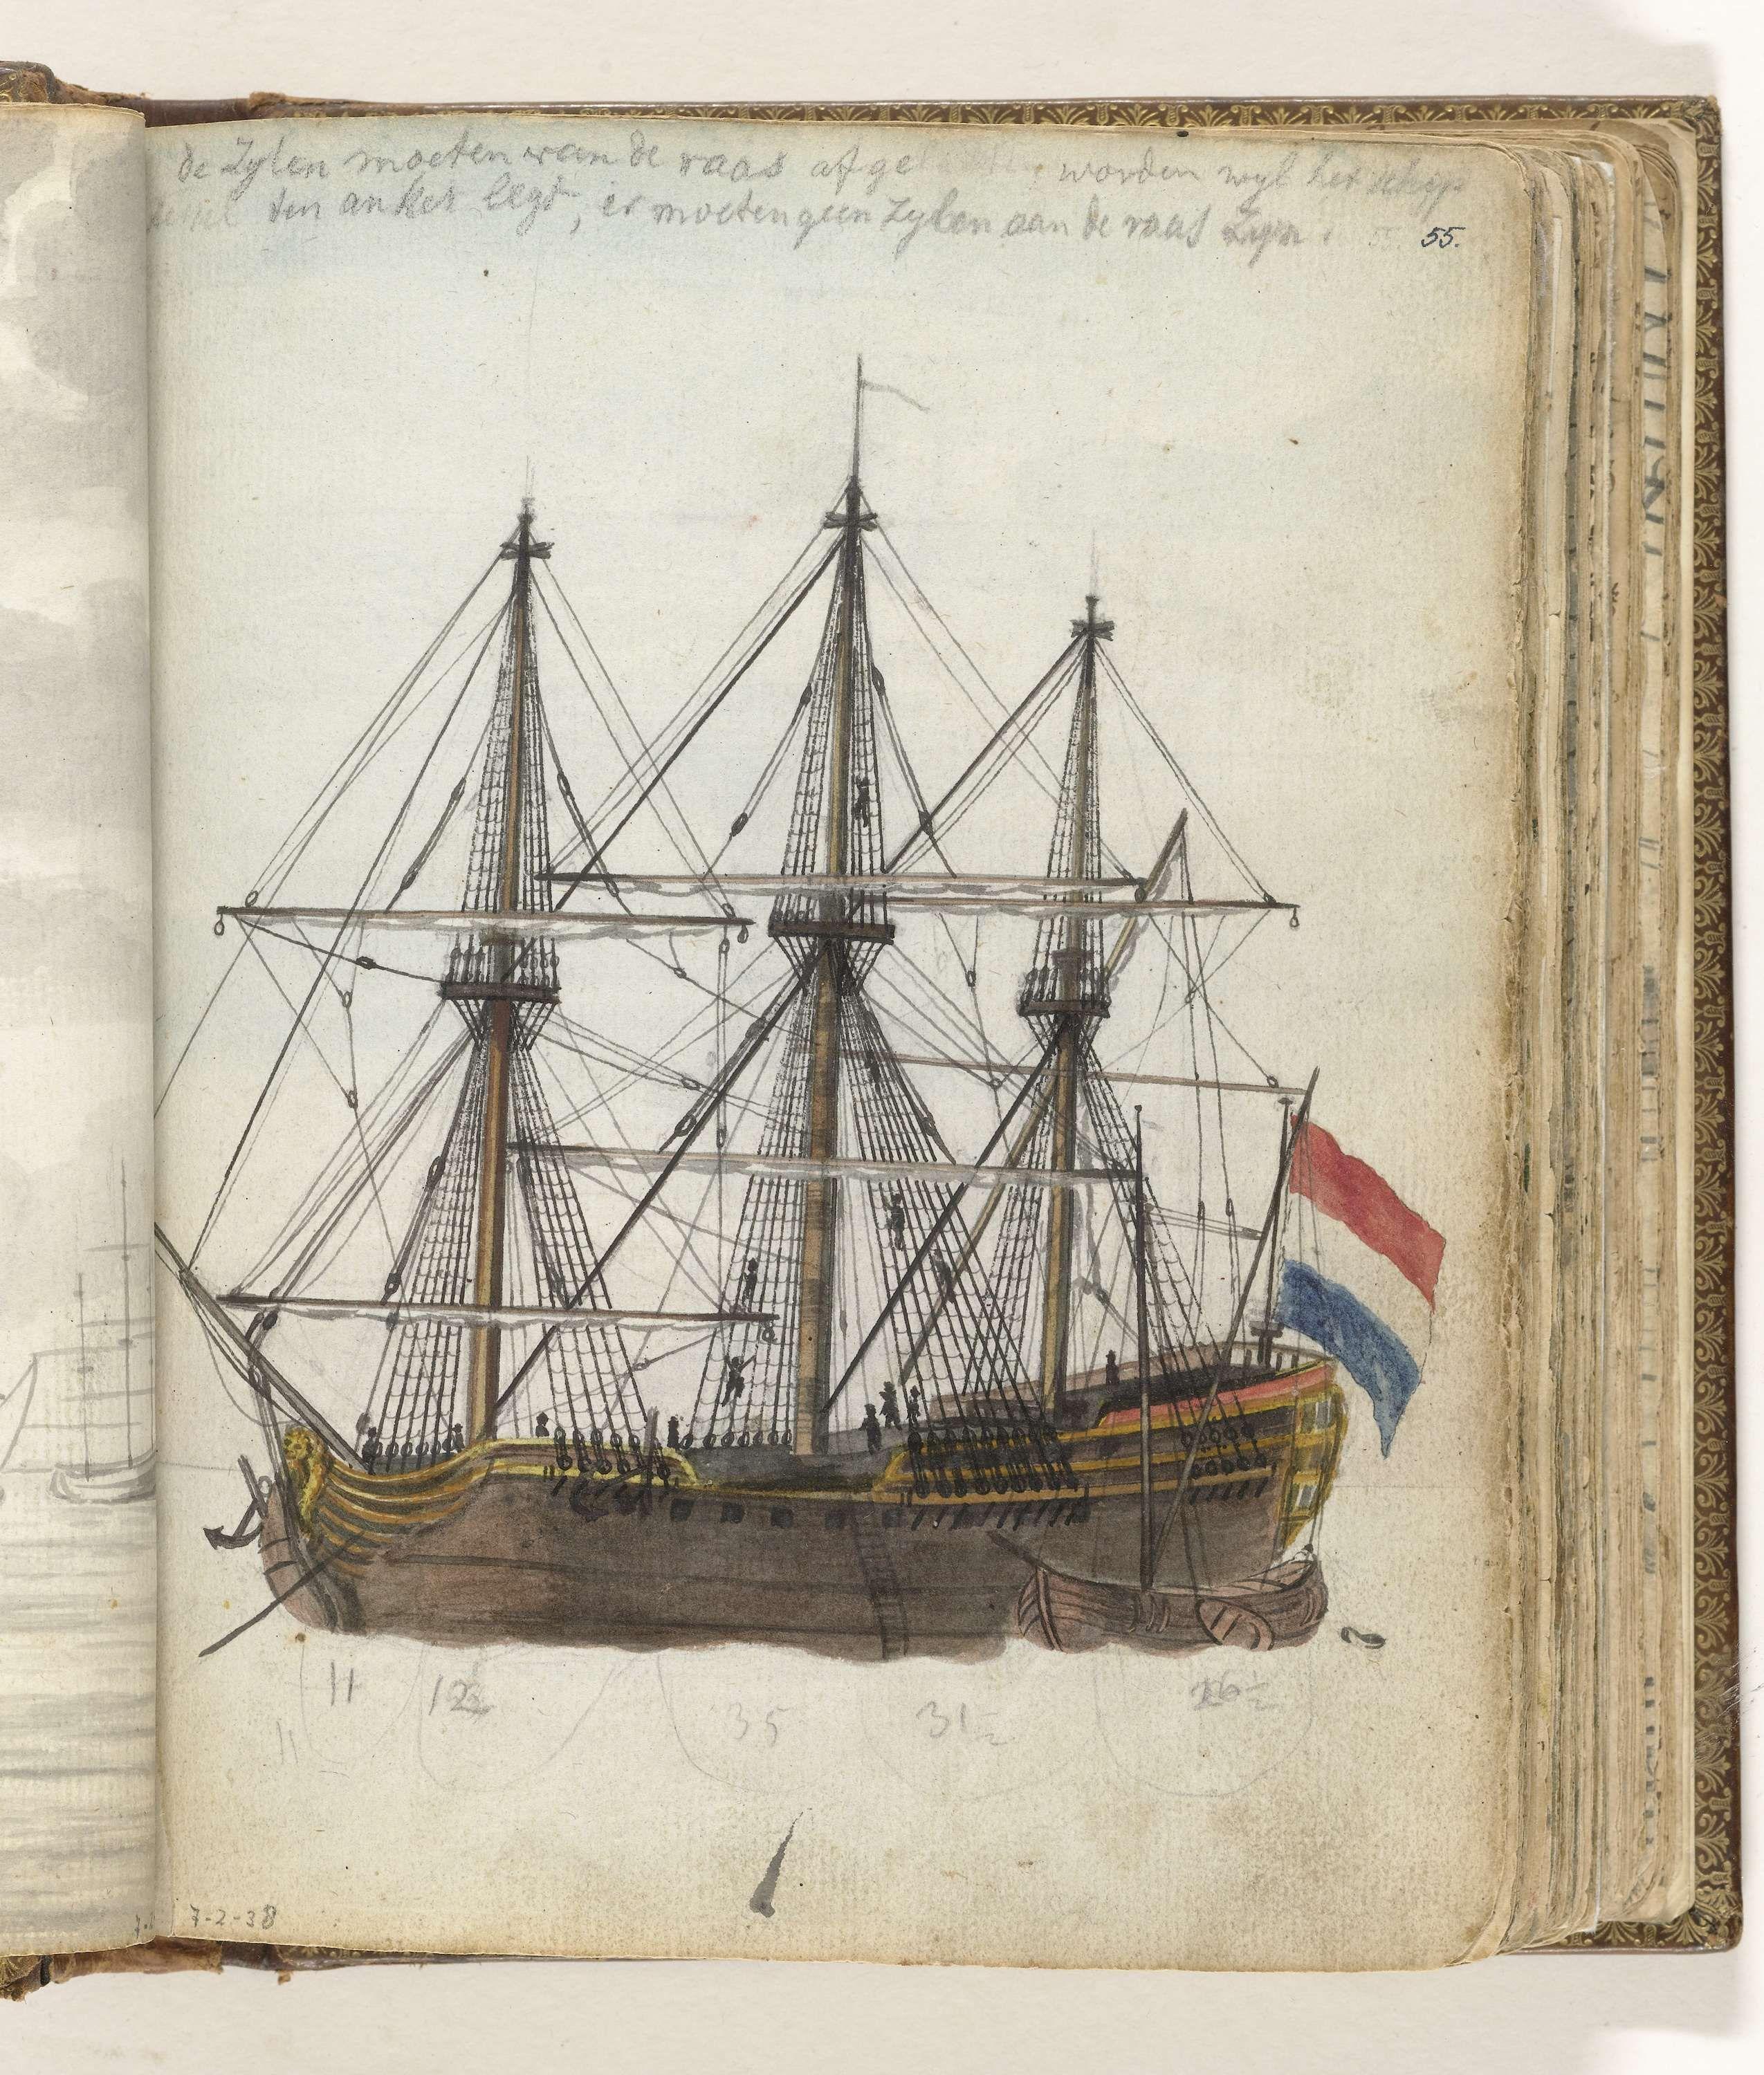 de Zylen moeten van de raas af worden wyl het schip
ten anker legd, er moeten geen Zylen aan de raas Zyn.
55.
11
12½
35
31½
26½
11
7-2-38